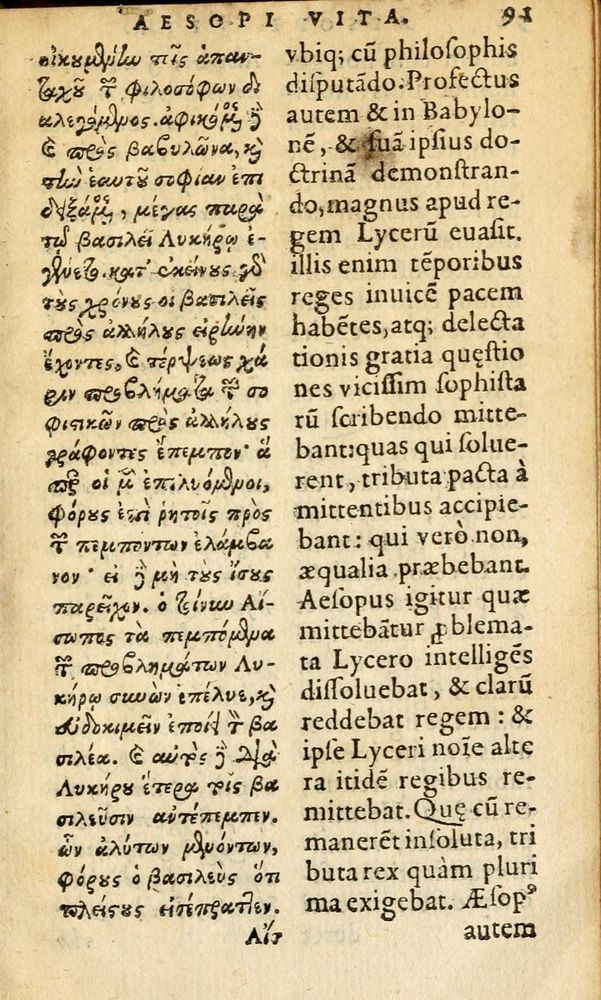 AESOPI VITA. 91
οἰκουμένην τοῖς ἁπαν-
ταχοῦ τῶν φιλοσόφων δι
αλεγόμενος. ἀφικόμενος δὲ
καὶ πρὸς βαβυλῶνα, καὶ
τὴν ἑαυτοῦ σοφίαν ἐπι
δειξάμενος, μέγας παρὰ
τῷ βασιλεῖ Λυκήρῳ ἐ-
γένετο. κατ' ἐκείνους γὰρ
τοὺς χρόνους οἱ βασιλεῖς
πρὸς ἀλλήλους εἰρήνην
ἔχοντες, καὶ τέρψεως χά
ριν προβλήματα τῶν σο
φιστικῶν πρὸς ἀλλήλους
γράφοντες ἔπεμπον· ἅ
περ οἱ μὲν ἐπιλυόμενοι,
φόρους ἐπὶ ῥητοῖς πρὸς
τῶν πεμπόντων ἐλάμβα
νον· εἰ δὲ μὴ τοὺς ἴσους
παρεῖχον. ὁ τοίνυν Αἴ-
σωπος τὰ πεμπόμενα
τῶν προβλημάτων Λυ-
κήρῳ συνιὼν ἐπέλυε, καὶ
εὐδοκιμεῖν ἐποίει τὸν βα
σιλέα. καὶ αὐτὸς δὲ διὰ
Λυκήρου ἕτερα τοῖς βα
σιλεῦσιν ἀντέπεμπεν.
ὧν ἀλύτων μενόντων,
φόρους ὁ βασιλεὺς ὅτι
πλείστους εἰσέπραττεν.
vbiq; cũ philoſophis
diſputãdo. Profectus
autem & in Babylo-
nẽ, & ſuã ipſius do-
ctrinã demonſtran-
do, magnus apud re-
gem Lycerũ euaſit.
illis enim tẽporibus
reges inuicẽ pacem
habẽtes, atq; delecta
tionis gratia quęſtio
nes viciſſim ſophiſta
rũ ſcribendo mitte-
bant: quas qui ſolue-
rent, tributa pacta à
mittentibus accipie-
bant: qui verò non,
æqualia præbebant.
Aeſopus igitur quæ
mittebãtur ꝓblema-
ta Lycero intelligẽs
diſſoluebat, & clarũ
reddebat regem: &
ipſe Lyceri noĩe alte
ra itidẽ regibus re-
mittebat. Quę cũ re-
manerẽt inſoluta, tri
buta rex quàm pluri
ma exigebat. Æſopꝰ
autem